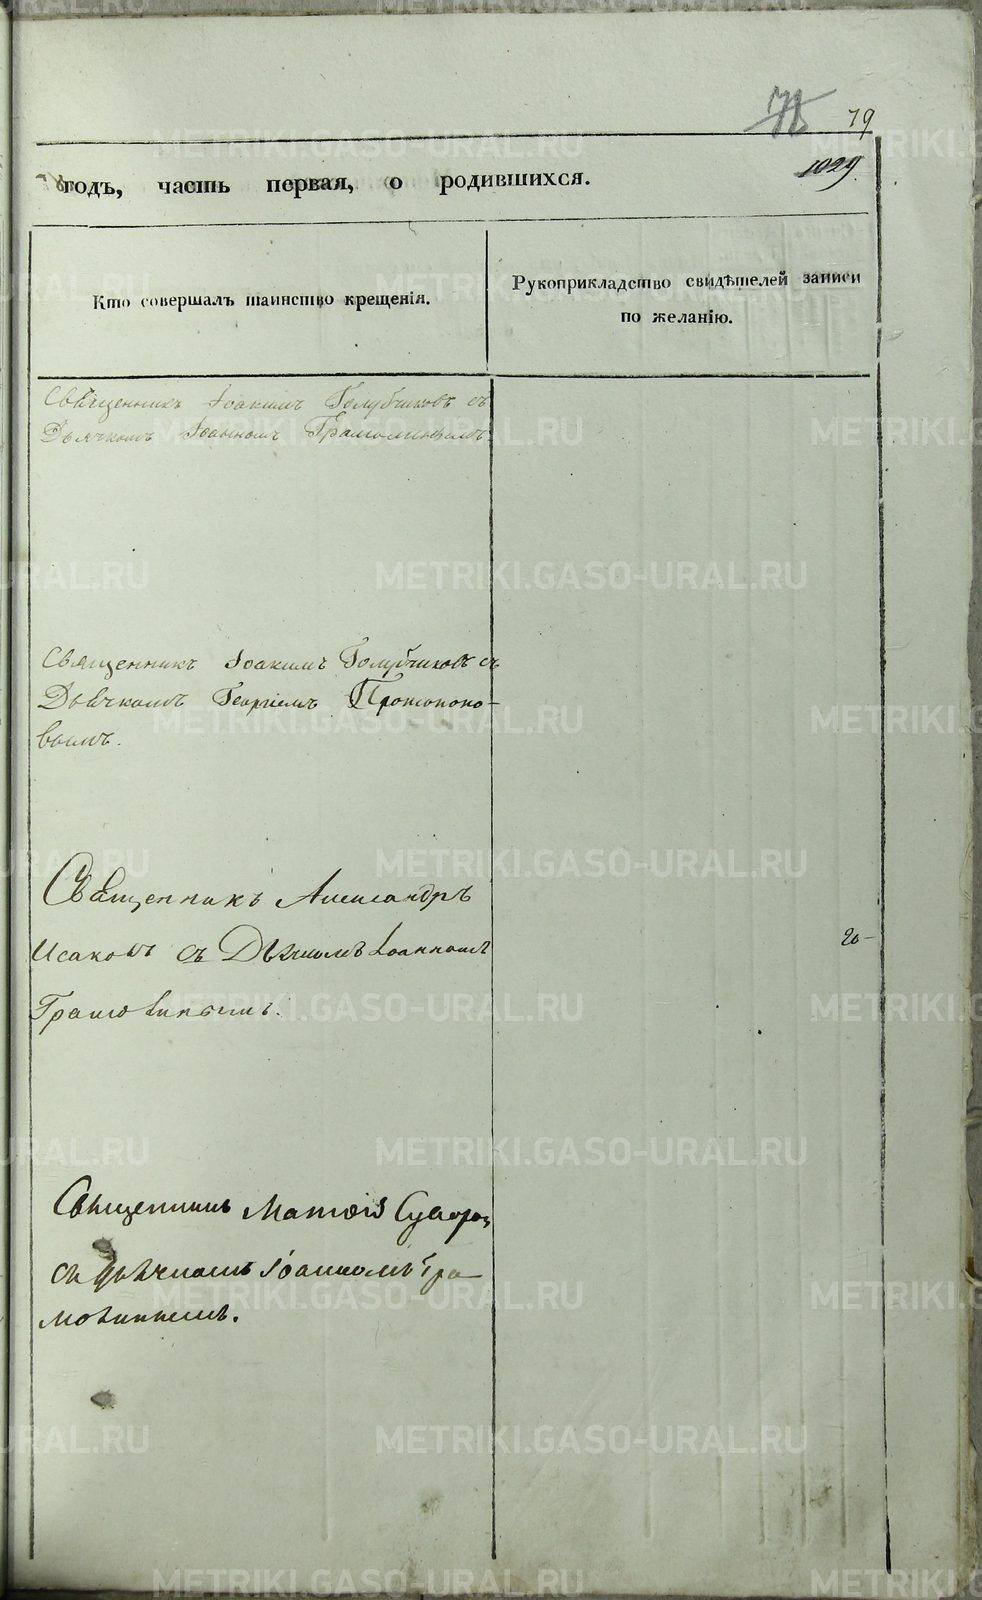 79
1029.
годъ, часть первая, о родившихся.
Кто совершалъ таинство крещенія.
Рукоприкладство свидѣтелей записи
по желанію.
Священникъ Іоакимъ Голубчиковъ съ
Дьячкомъ Іоанномъ
Священникъ Іоакимъ Голубчиковъ съ
Дьячкомъ Георгіемъ Протопопо-
вымъ.
Священникъ Александръ
Исаковъ съ Дьячкомъ Іоанномъ
20-
Священникъ
съ дьячкомъ Іоанномъ Гра-
METRIKI.GASO-URAL.RU